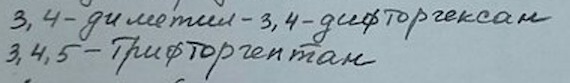 3,4-диметил-3,4-дифторгексан
3,4,5-Трифторгептан